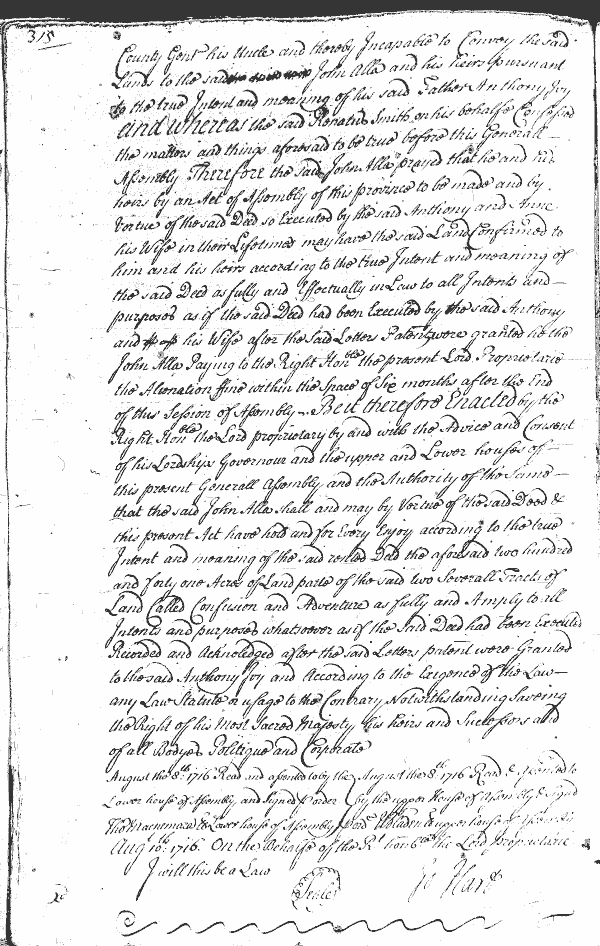 315
County Gent his Uncle and thereby Incapable to Convey the said
Lands to the said John Alla and his heirs pursuant
to the true Intent and meaning of his said Father Anthony Joy
and whereas the said Renatus Smith on his behalfe Confessed
the matters and things aforesaid to be true before this Generall
Assembly Therefore the said John Alla prayed that he and his
heirs by an Act of Assembly of this province to be made and by
Vertue of the said Deed so Executed by the said Anthony and Anne
his Wife in their Lifetimes may have the said Land Confirmed to
him and his heirs according to the true Intent and meaning of
the said Deed as fully and Effectually in Law to all Intents and
purposes as if the said Deed had been Executed by the said Anthony
and his Wife after the said Letters Patent were granted he the
John Alla Paying to the Right Honble the present Lord Proprietarie
the Alienation ffine within the Space of Six months after the End
of this Session of Assembly Be it therefore Enacted by the
Right Honble the Lord proprietary by and with the Advice and Consent
of his Lordships Governour and the upper and Lower houses of
this present Generall Assembly and the Authority of the Same
that the said John Alla shall and may by Vertue of the said Deed &
this present Act have hold and for Every Enjoy according to the true
Intent and meaning of the said recited Deed the aforesaid two hundred
and forty one Acres of Land parte of the said two Severall Tracts of
Land Called Confusion and Adventure as fully and Amply to all
Intents and purposes whatsoever as if the said Deed had been Executed
Recorded and Acknoledged after the said Letters patent were Granted
to the said Anthony Joy and According to the Exigence of the Law
any Law Statute or usage to the Contrary Notwithstanding Saveing
the Right of his Most Sacred Majesty his heirs and Successors and
of all Bodyes Politique and Corporate
August the 8th 1716 Read and assented to by the August the 8th 1716 Read & Assented to
Lower house of Assembly and Signed p order by the upper House of Assembly & Signd
Tho Macnemara Clk Lower house of Assembly p order WBladen upper house of Assembly
Aug 10th 1716 On the behalfe of the Rt Honble the Lord Proprietarie
I will this be a Law
Seale
Jo Hart